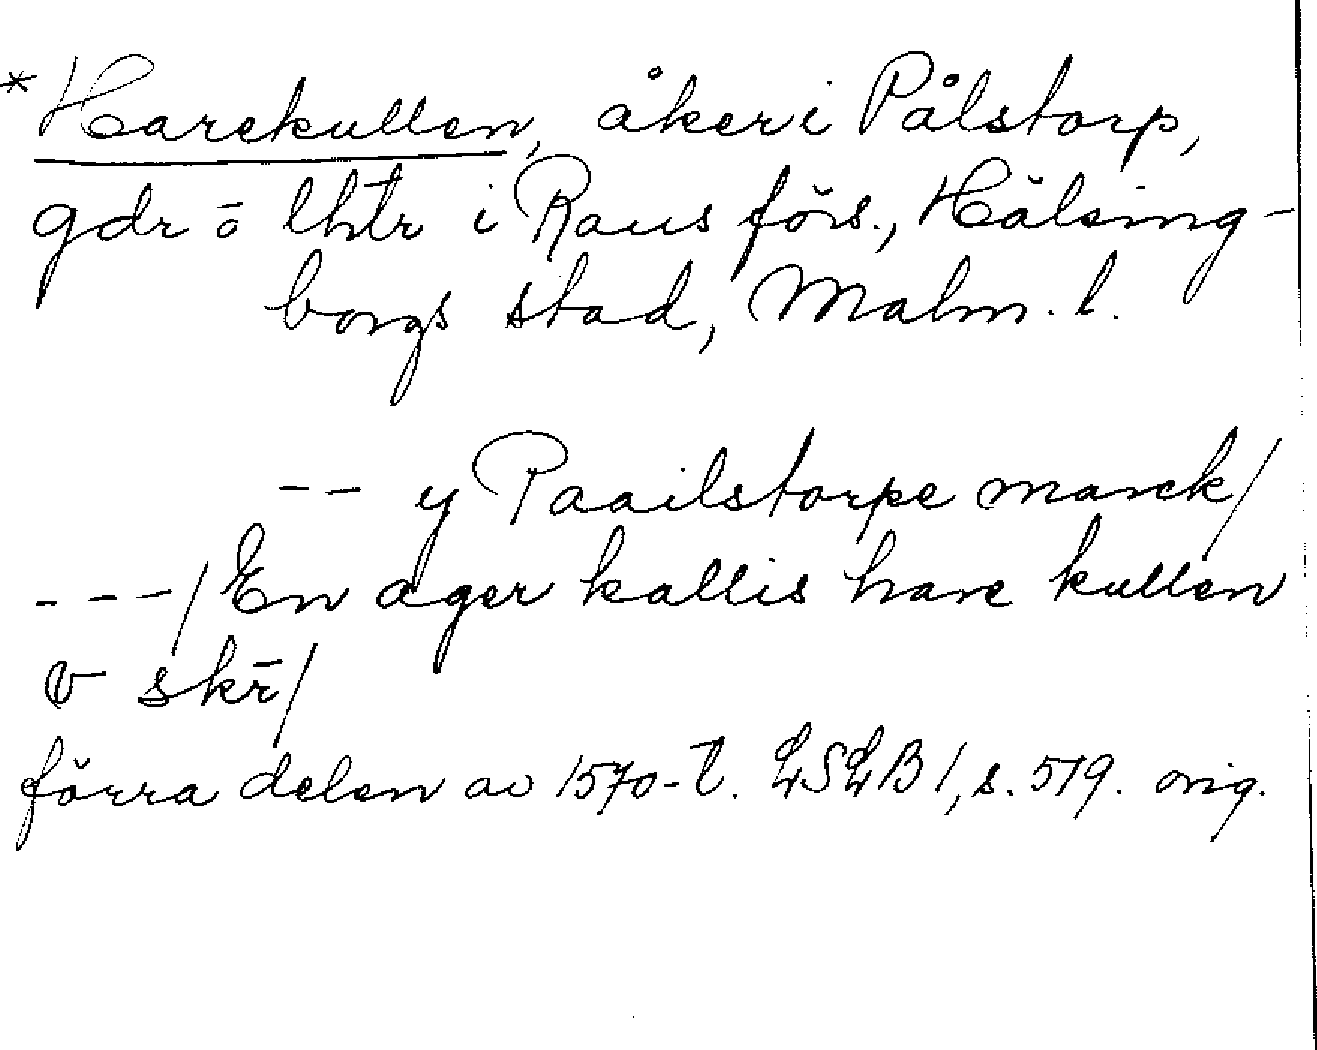 *Harekullen, åker i Pålstorp,
gdr o lhtr i Raus förs., Hälsing-
borgs stad, Malm. l.
-- y Paailstorpe marck/
---/ En ager kallis hare kullen
v skr/
förra delen av 1570-t. LSLB 1, s. 519. orig.